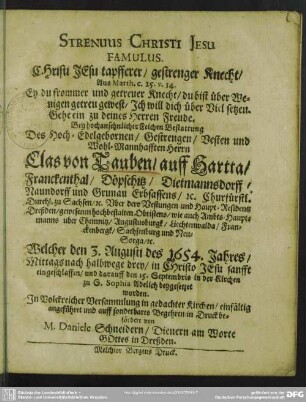 STRENUUS CHRISTI JESU
FAMULUS.
Christi JEsu tapfferer/ gestrenger Knecht/
Aus Matth. c. 25. v. 14.
Ey du frommer und getreuer Knecht/ du bist über We-
nigen getreu gewest/ Ich will dich über Viel setzen.
Gehe ein zu deines Herren Freude.
Bey hochansehnlicher Leichen Bestattung
Des Hoch-Edelgebornen/ Gestrengen/ Vesten und
Wohl-Mannhafften Herrn
Clas von Tauben/ auff Hartta/
Franckenthal/ Döpschitz/ Dietmannsdorff/
Naundorff und Grunau Erbsassens/ ɾc. Churfürstl.
Durchl. zu Sachsen/ ɾc. Uber dero Vestungen und Haupt-Residentz
Dreßden/ gewesenen hochbestalten Obristens/ wie auch Ambts-Haupt-
manns über Chemnitz/ Augustusburgk/ Liechtenwalda/ Fran-
ckenbergk/ Sachsenburg und Neu
Sorga/ ɾc.
Welcher den 3. Augusti des 1654. Jahres/
Mittags nach halbwege drey/ in Christo JEsu sanfft
eingeschlaffen/ und darauff den 15. Septembris in der Kirchen
zu S. Sophia Adelich beygesetzet
worden.
In Volckreicher Versammlung in gedachter Kirchen/ einfältig
angeführet und auff sonderbares Begehren in Druck be-
fördert von
M. Daniele Schneidern/ Dienern am Worte
GOttes in Dreßden.
Melchior Bergens Druck.